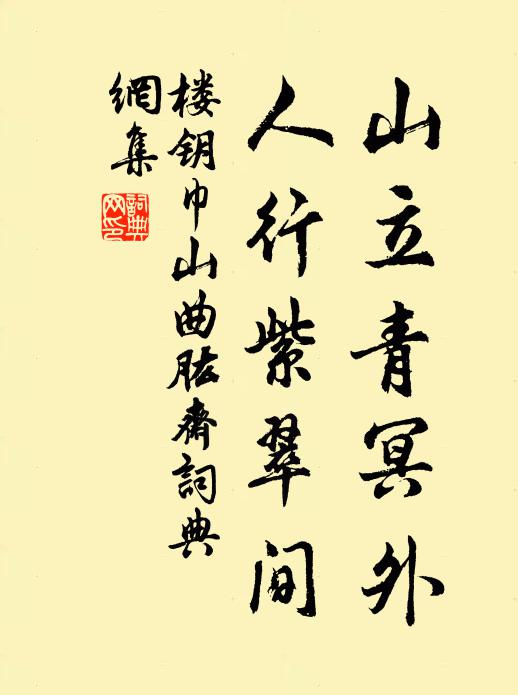 山立青冥外
人行紫翠间
楼钥巾山曲肱斋詞典
網集
詞典
网印